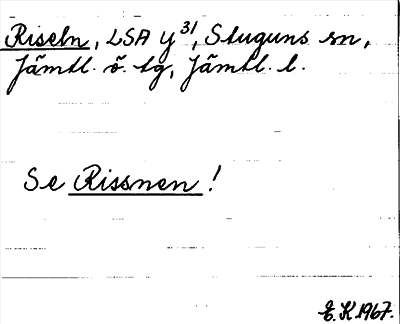 Riseln, LSA y 31, Stuguns sn,
Jämtl. ö. tg, Jämtl. l.
Se Rissnen!
E. K 1967.